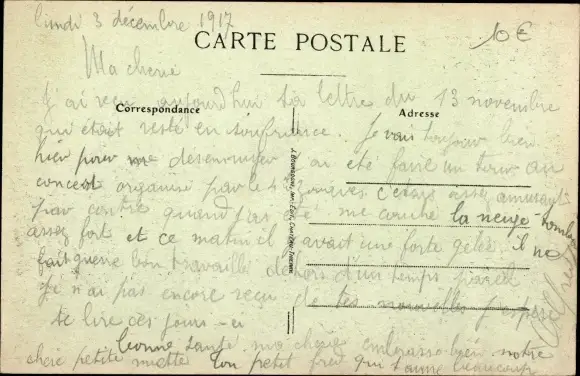 lundi 3 décembre 1917
10 €
CARTE POSTALE
Ma cherie
Correspondance
Adresse
J'ai reçu aujourd'hui ta lettre du 13 novembre
qui était resté en souffrance. Je vais toujour bien
hier pour me desennuyer j'ai eté faire un tour au
concert organisé par le 4 zouaves c'etais assez amusant
par contre quand j'ai été me couché la neige tombai
assez fort et ce matin il y avait une forte gelée. il ne
fait guere bon travaillé dehors d'un temps pareil
Je n'ai pas encore reçu de tes nouvelles j'espere
te lire ces jours-ci
bonne santé ma cherie embrasse bien notre
chere petite miette ton petit qui t'aime beaucoup